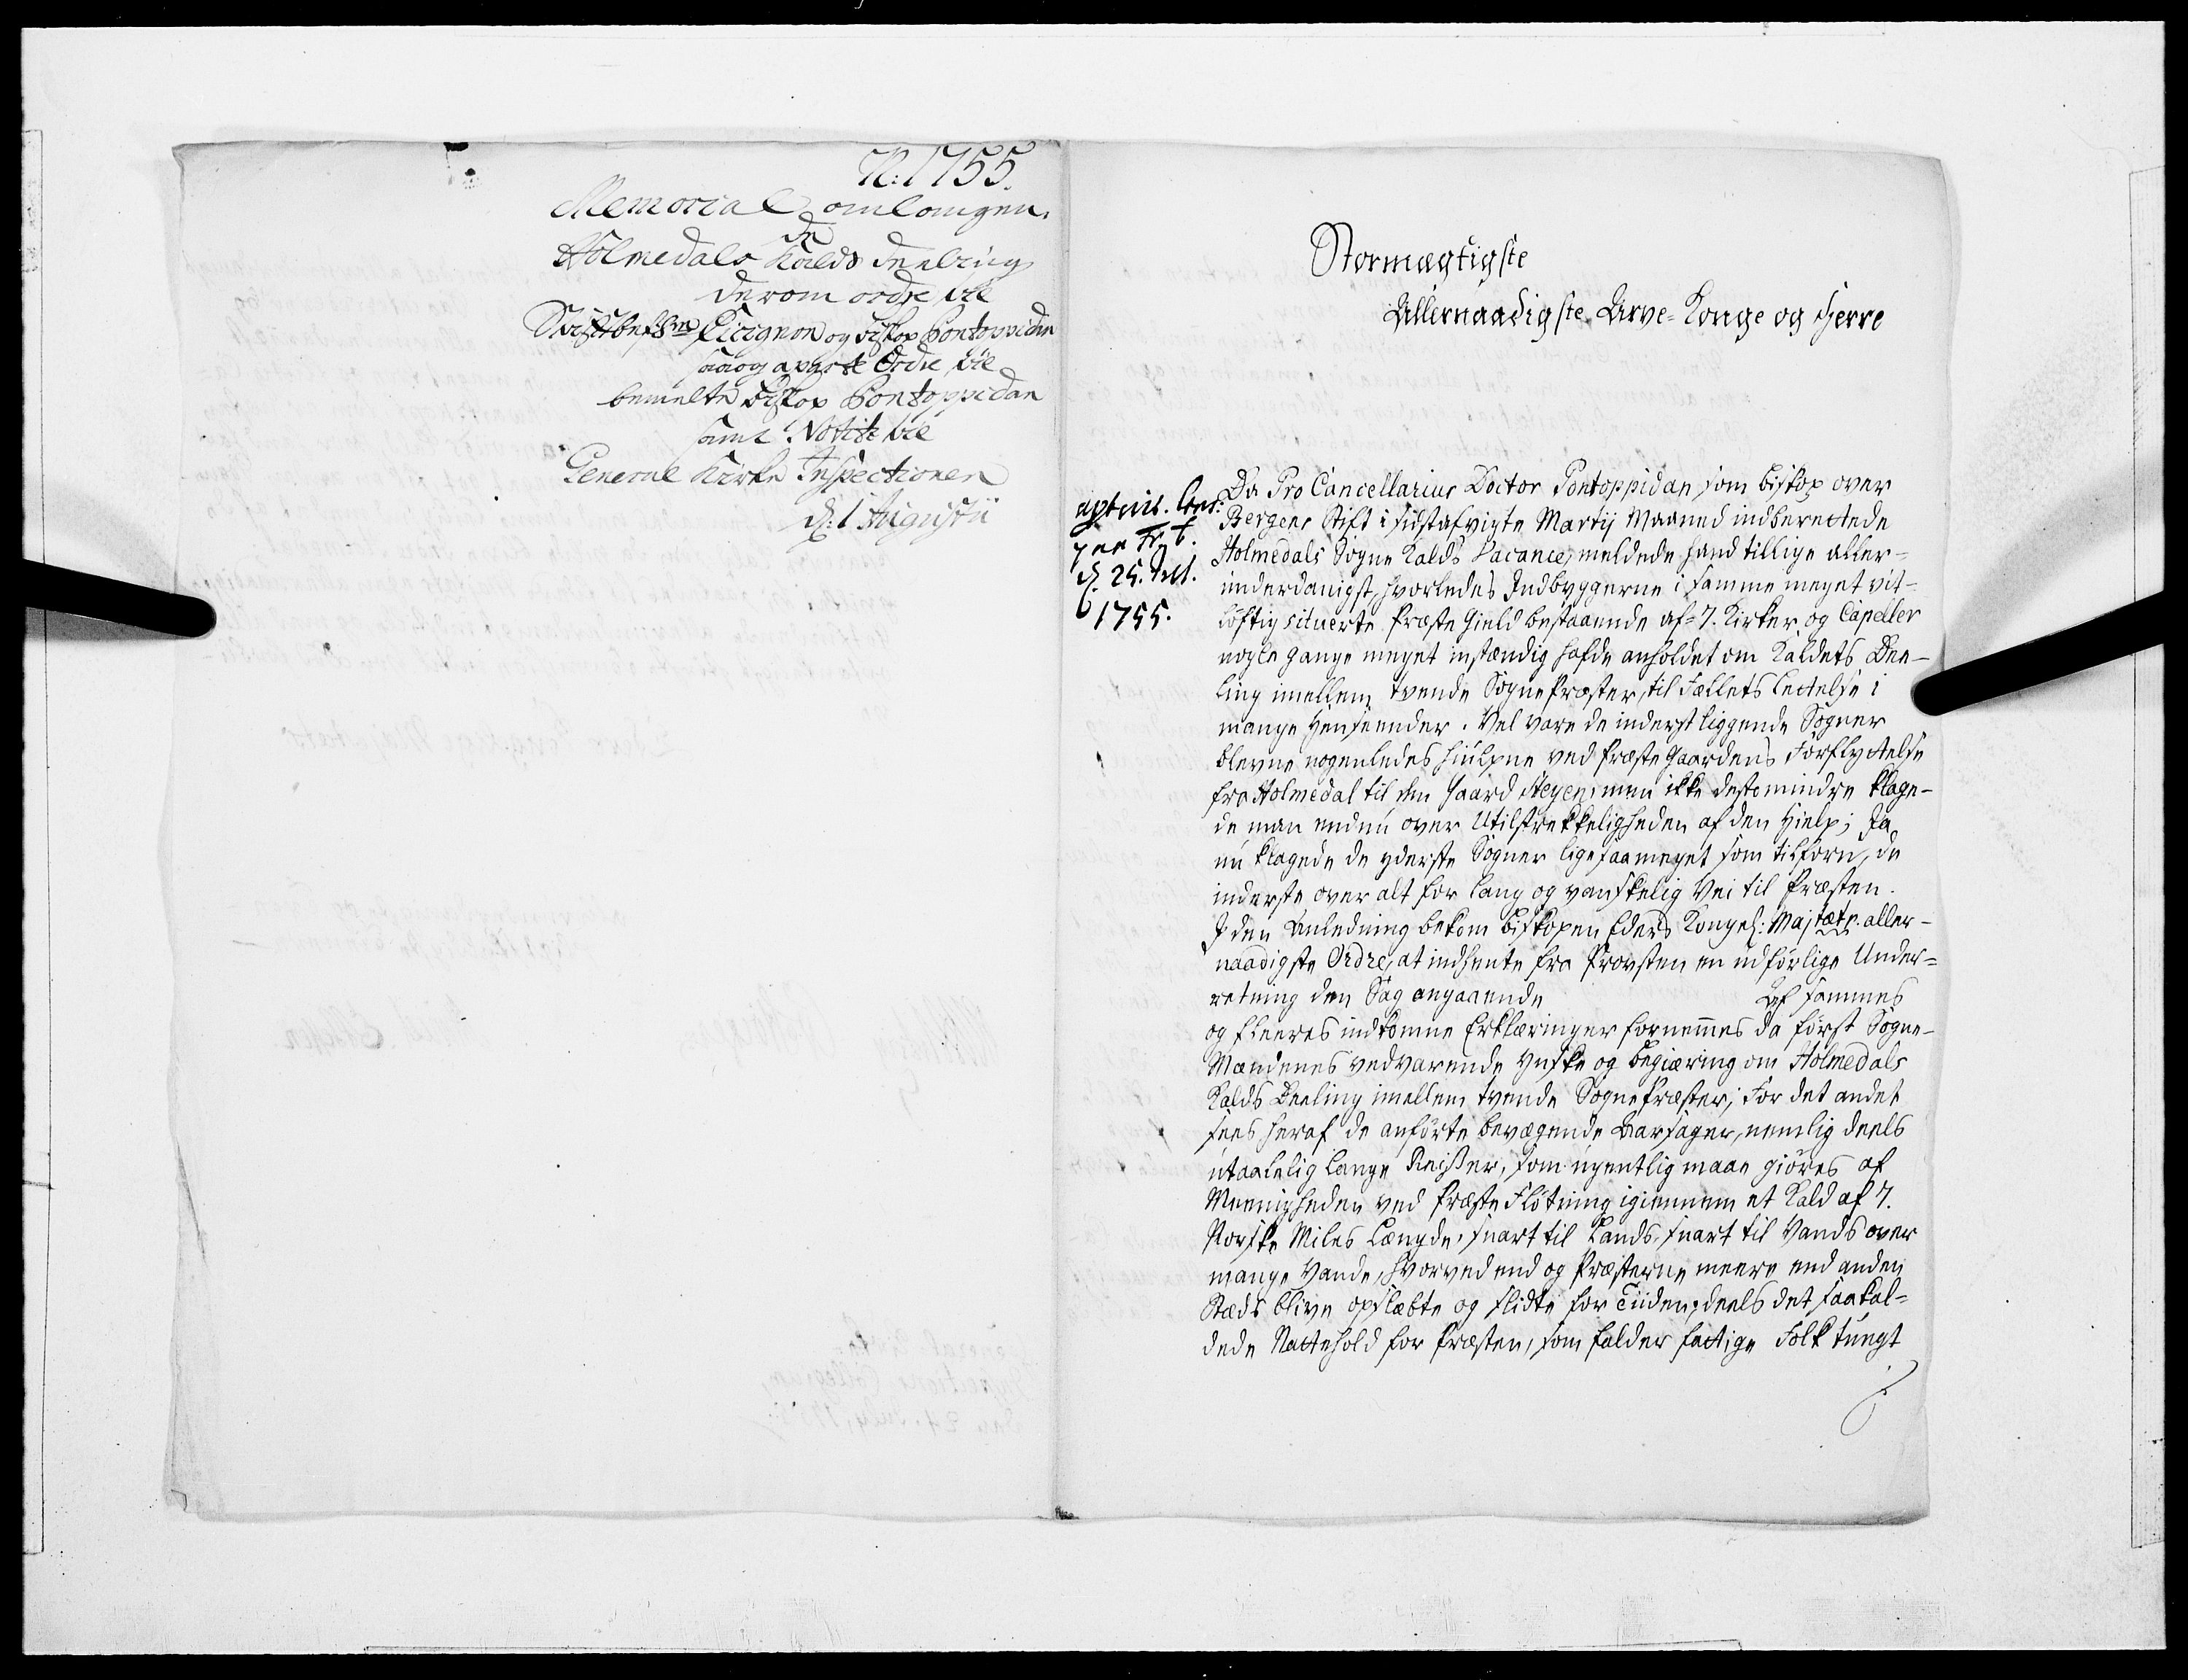 N: 1755.
Memorial anlangen-
de
Holmedals Kalds Deeling
derom ordre til
Stiftbefalings Cicignon og Biskop Pontoppidan
saa og aparte Ordre til
bemelte Biskop Pontoppidan
samt Notitz til
General Kirke Inspectionen
d: 1 Augustii
Stormægtigste
Allernaadigste Arve-Konge og Herre
d. 25. Jul.
1755.
Da Pro Cancellarius Doctor Pontoppidan som biskop over
Bergens Stift i sidstafvigte Martij Maaned indberettede
Holmedals Sogne Kalds Vacance, meldede hand tillige aller-
underdanigst, hvorledes Indbyggerne i samme meget vit-
løftig situerte Præste Gield bestaaende af 7. Kirker og Capeller
nogle gange meget instændig hafde anholdet om Kaldets Dee-
ling imellem tvende Sogne Præster, til Fællets lettelse i
mange Henseender. Vel vare de inderst liggende Sogner
blevne nogenledes hiulpne ved Præste Gaardens Forflyttelse
fra Holmedal til den Gaard Steyen, men ikke desto mindre klage-
de man endnu over Utilstrekkeligheden af den Hielp; Ja
nu klagede de yderste Sogner ligesaameget som tilforn, de
inderste over alt for lang og vanskelig Vei til Præsten.
I den Anledning bekom biskopen Eders Kongel: Majtæts aller-
naadigste Ordre, at indhente fra Provsten en udførlige Under-
retning den Sag angaaende Af sammes
og fleeres indkomne Erklæringer fornemmes da først Sogne-
Mændenes vedvarende ynske og begiæring om Holmedals
Kalds Deeling imellem tvende Sogne Præster; For det andet
sees heraf de anførte bevægende Aarsager, nemlig deels
utaalelig lange Reiser, som ugentlig maae giøres af
Meenigheden ved Præste Fløtning igiennem et Kald af 7.
Norske Miles Længde, snart til Lands, snart til Vands over
mange Vande, hvorved end og Præsterne meere end anden
Stæds blive opslæbte og slidte for Tiiden; deels det saakal-
dede Nattehold for Præsten, som falder fattige Folk tungt